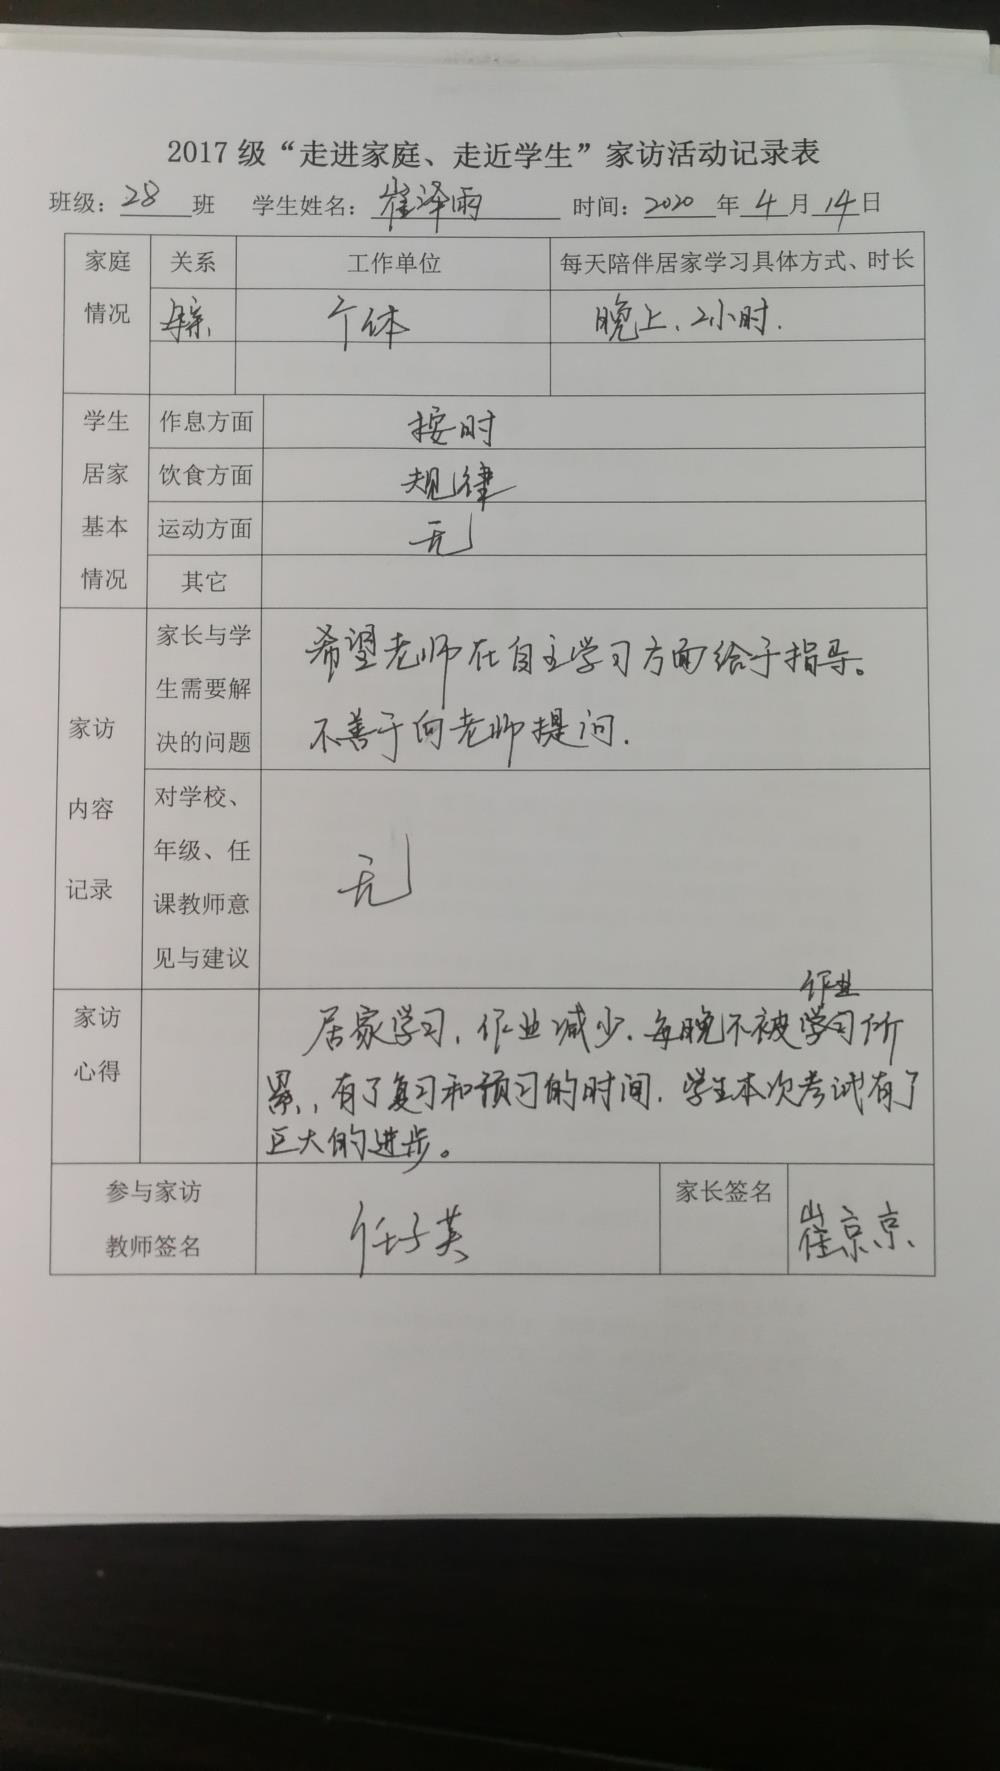 2017 级“走进家庭、走近学生”家访活动记录表
班级：28 班 学生姓名：崔泽雨 时间：2020 年 4 月 14 日
家庭情况 关系 工作单位 每天陪伴居家学习具体方式、时长
个体 晚上、2小时.
学生居家基本情况 作息方面 按时
饮食方面 规律
运动方面 无
其它
家访内容记录
家长与学生需要解决的问题
希望老师在自主学习方面给予指导。
不善于向老师提问.
对学校、年级、任课教师意见与建议
无
家访心得
作业
居家学习，作业减少，每晚不被学习所
累，有了复习和预习的时间，学生本次考试有了
巨大的进步。
参与家访教师签名 任子英 家长签名 崔京京